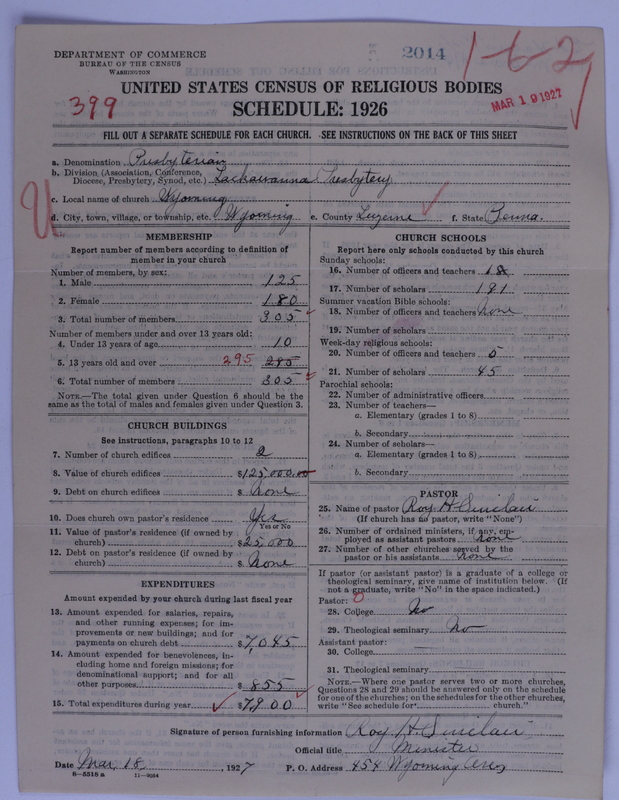 2014
1-62
DEPARTMENT OF COMMERCE
BUREAU OF THE CENSUS
WASHINGTON
UNITED STATES CENSUS OF RELIGIOUS BODIES
SCHEDULE: 1926
399
MAR 19 1927
FILL OUT A SEPARATE SCHEDULE FOR EACH CHURCH. SEE INSTRUCTIONS ON THE BACK OF THIS SHEET
a. Denomination Presbyterian
b. Division (Association, Conference, Diocese, Presbytery, Synod, etc.) Lackawanna Presbytery
c. Local name of church Wyoming
d. City, town, village, or township, etc. Wyoming e. County Luzerne f. State Penna.
MEMBERSHIP
Report number of members according to definition of
member in your church
Number of members, by sex:
1. Male 125
2. Female 180
3. Total number of members 305
Number of members under and over 13 years old:
4. Under 13 years of age 10
5. 13 years old and over 295 285
6. Total number of members 305
NOTE.—The total given under Question 6 should be the
same as the total of males and females given under Question 3.
CHURCH BUILDINGS
See instructions, paragraphs 10 to 12
7. Number of church edifices 2
8. Value of church edifices $125,000.00
9. Debt on church edifices $ None
10. Does church own pastor's residence Yes
Yes or No
11. Value of pastor's residence (if owned by
church) $25,000
12. Debt on pastor's residence (if owned by
church) $ None
EXPENDITURES
Amount expended by your church during last fiscal year
13. Amount expended for salaries, repairs,
and other running expenses; for im-
provements or new buildings; and for
payments on church debt $7,045
14. Amount expended for benevolences, in-
cluding home and foreign missions; for
denominational support; and for all
other purposes $855
15. Total expenditures during year $7,900
CHURCH SCHOOLS
Report here only schools conducted by this church
Sunday schools:
16. Number of officers and teachers 18
17. Number of scholars 191
Summer vacation Bible schools:
18. Number of officers and teachers None
19. Number of scholars
Week-day religious schools:
20. Number of officers and teachers 5
21. Number of scholars 45
Parochial schools:
22. Number of administrative officers
23. Number of teachers—
a. Elementary (grades 1 to 8)
b. Secondary
24. Number of scholars—
a. Elementary (grades 1 to 8)
b. Secondary
PASTOR
25. Name of pastor Roy H. Sinclair
(If church has no pastor, write "None")
26. Number of ordained ministers, if any, em-
ployed as assistant pastors None
27. Number of other churches served by the
pastor or his assistants None
If pastor (or assistant pastor) is a graduate of a college or
theological seminary, give name of institution below. (If
not a graduate, write "No" in the space indicated.)
Pastor: 0
28. College No
29. Theological seminary No
Assistant pastor:
30. College
31. Theological seminary
NOTE.—Where one pastor serves two or more churches,
Questions 28 and 29 should be answered only on the schedule
for one of the churches; on the schedules for the other churches,
write "See schedule for church."
Signature of person furnishing information Roy H. Sinclair
Official title Minister
Date Mar. 18, 1927 P. O. Address 454 Wyoming Ave.
8—5518 a 11—9064